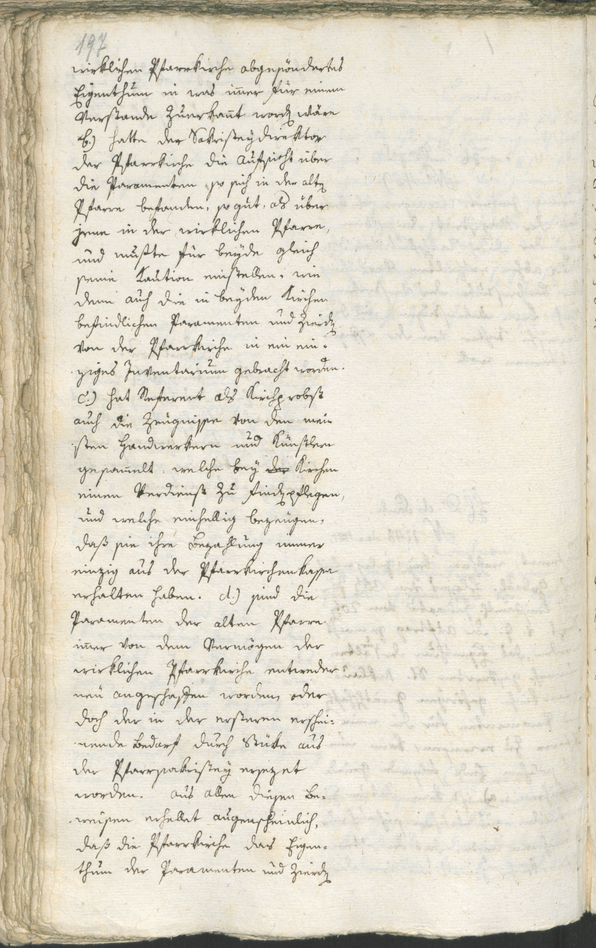 197
wirklichen Pfarrkirche abgesöndertes
Eigenthum in was im̄er für einem
Verstande zuerkan̄t word wäre
b.) hatte der Sakristeydirektor
der Pfarrkirche die Aufsicht über
die Paramenten, so sich in der alt
Pfarre befanden, so gut, als über
jene in der wirklichen Pfarre,
und mußte für beyde gleich
seine Kaution einstellen. wie
denn auch die in beyden Kirchen
befindlichen Paramenten und Zierd
von der Pfarrkirche in ein ein-
ziges Inventarium gebracht worden.
c.) hat Referent als Kirchprobst
auch die Zeugnisse von den mei-
sten Handwerkern und Künstlern
gesam̄elt, welche bey der Kirchen
einen Verdienst zu find pflegen,
und welche einhellig bezeugen,
daß sie ihre Bezahlung immer
einzig aus der Pfarrkirchenkasse
erhalten haben. d.) sind die
Paramenten der alten Pfarre
im̄er von dem Vermögen der
wirklichen Pfarrkirche entweder
neu angeschaffen worden, oder
doch der in der ersteren erschei-
nende Bedarf durch Stüke aus
der Pfarrsakristey ersezet
worden. Aus allen diesen Be-
weisen erhellet augenscheinlich,
daß die Pfarrkirche das Eigen-
thum der Paramenten und Zierd